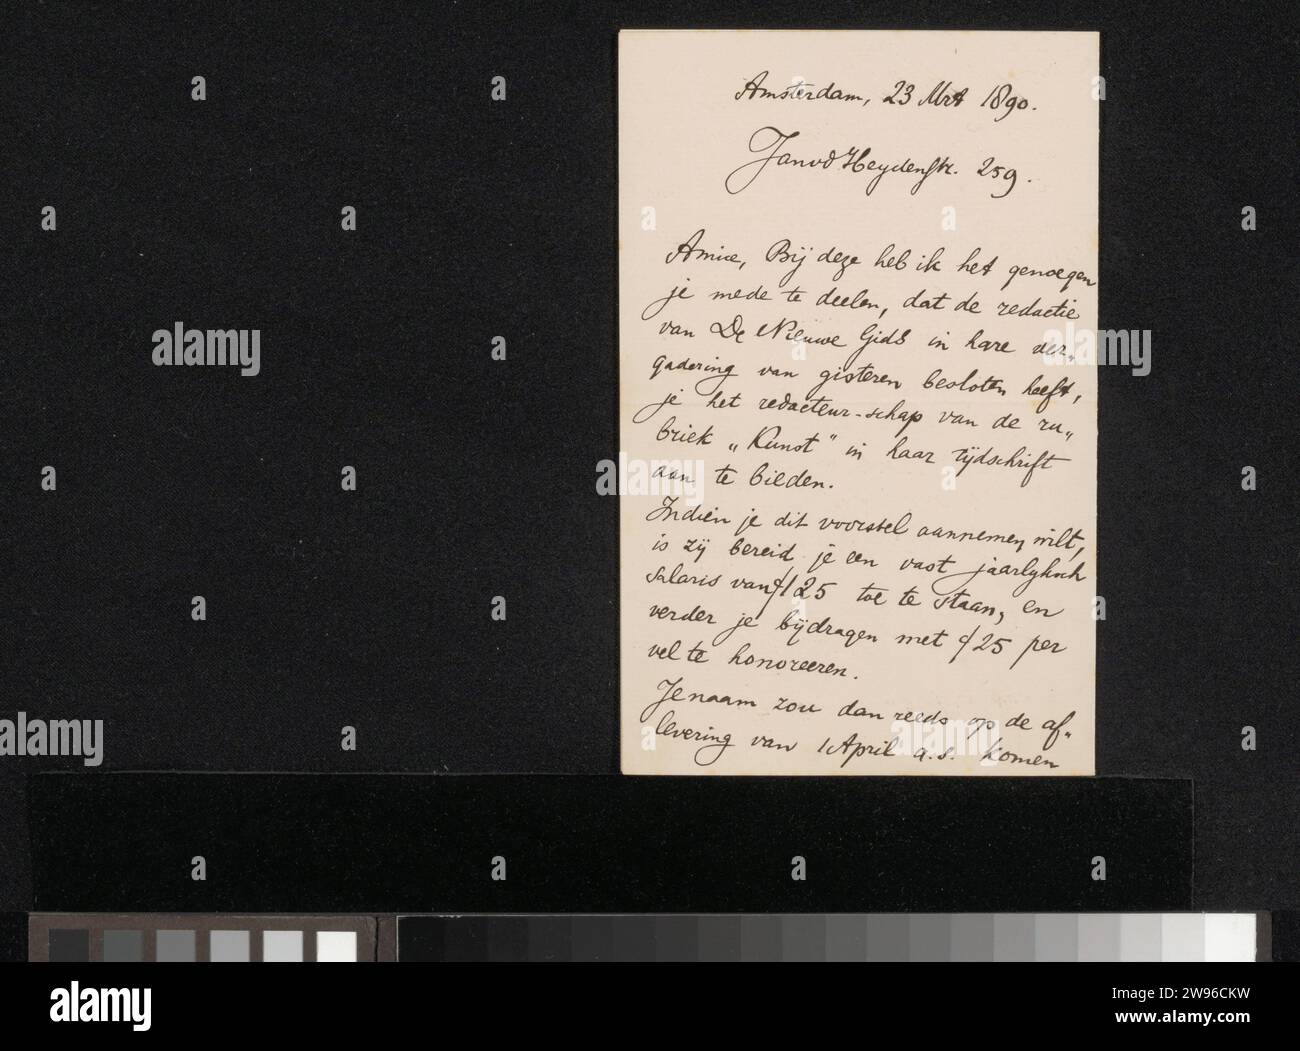 Amsterdam, 23 Mrt 1890.
Jan vd Heydenstr. 259.
Amice, Bij deze heb ik het genoegen
je mede te deelen, dat de redactie
van De Nieuwe Gids in hare ver„
gadering van gisteren besloten heeft,
je het redacteur-schap van de ru„
briek „Kunst" in haar tijdschrift
aan te bieden.
Indien je dit voorstel aannemen wilt,
is zij bereid je een vast jaarlyksch
salaris van ƒ125 toe te staan, en
verder je bijdragen met ƒ25 per
vel te honoreeren.
Je naam zou dan reeds op de af„
levering van 1 April a.s. komen
alamy
Image ID: 2W96CKW
www.alamy.com